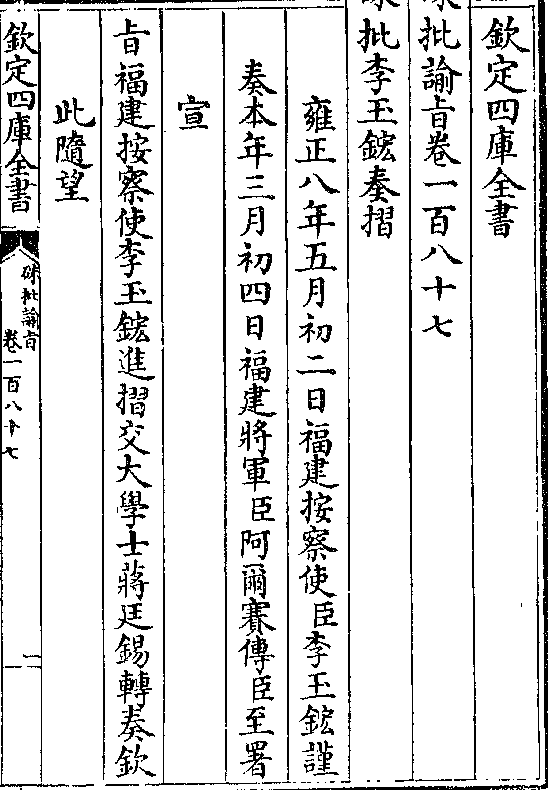 欽定四庫全書
硃批諭旨卷一百八十七
硃批李玉鋐奏摺
雍正八年五月初二日福建按察使臣李玉鋐謹
奏本年三月初四日福建將軍臣阿爾賽傳臣至署
宣
旨福建按察使李玉鋐進摺交大學士蔣廷錫轉奏欽
此隨望
欽定四庫全書
硃批諭旨
卷一百八十七
一